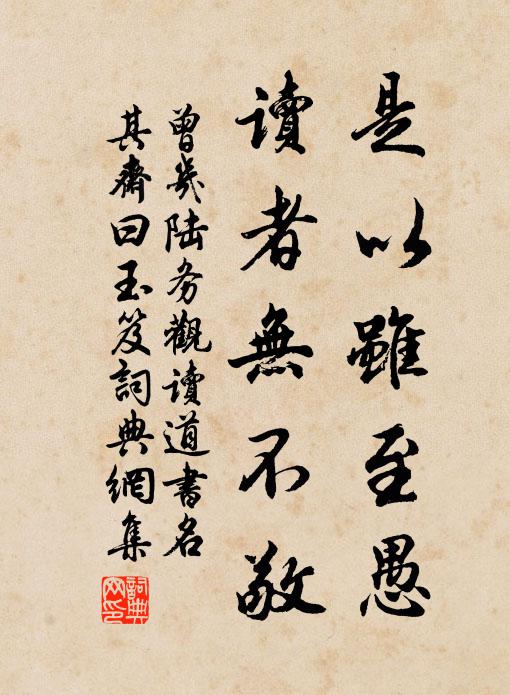 是以雖至愚
讀者無不敬
曾幾陆务觀讀道書名
其齋曰玉笈詞典網集
詞典網印